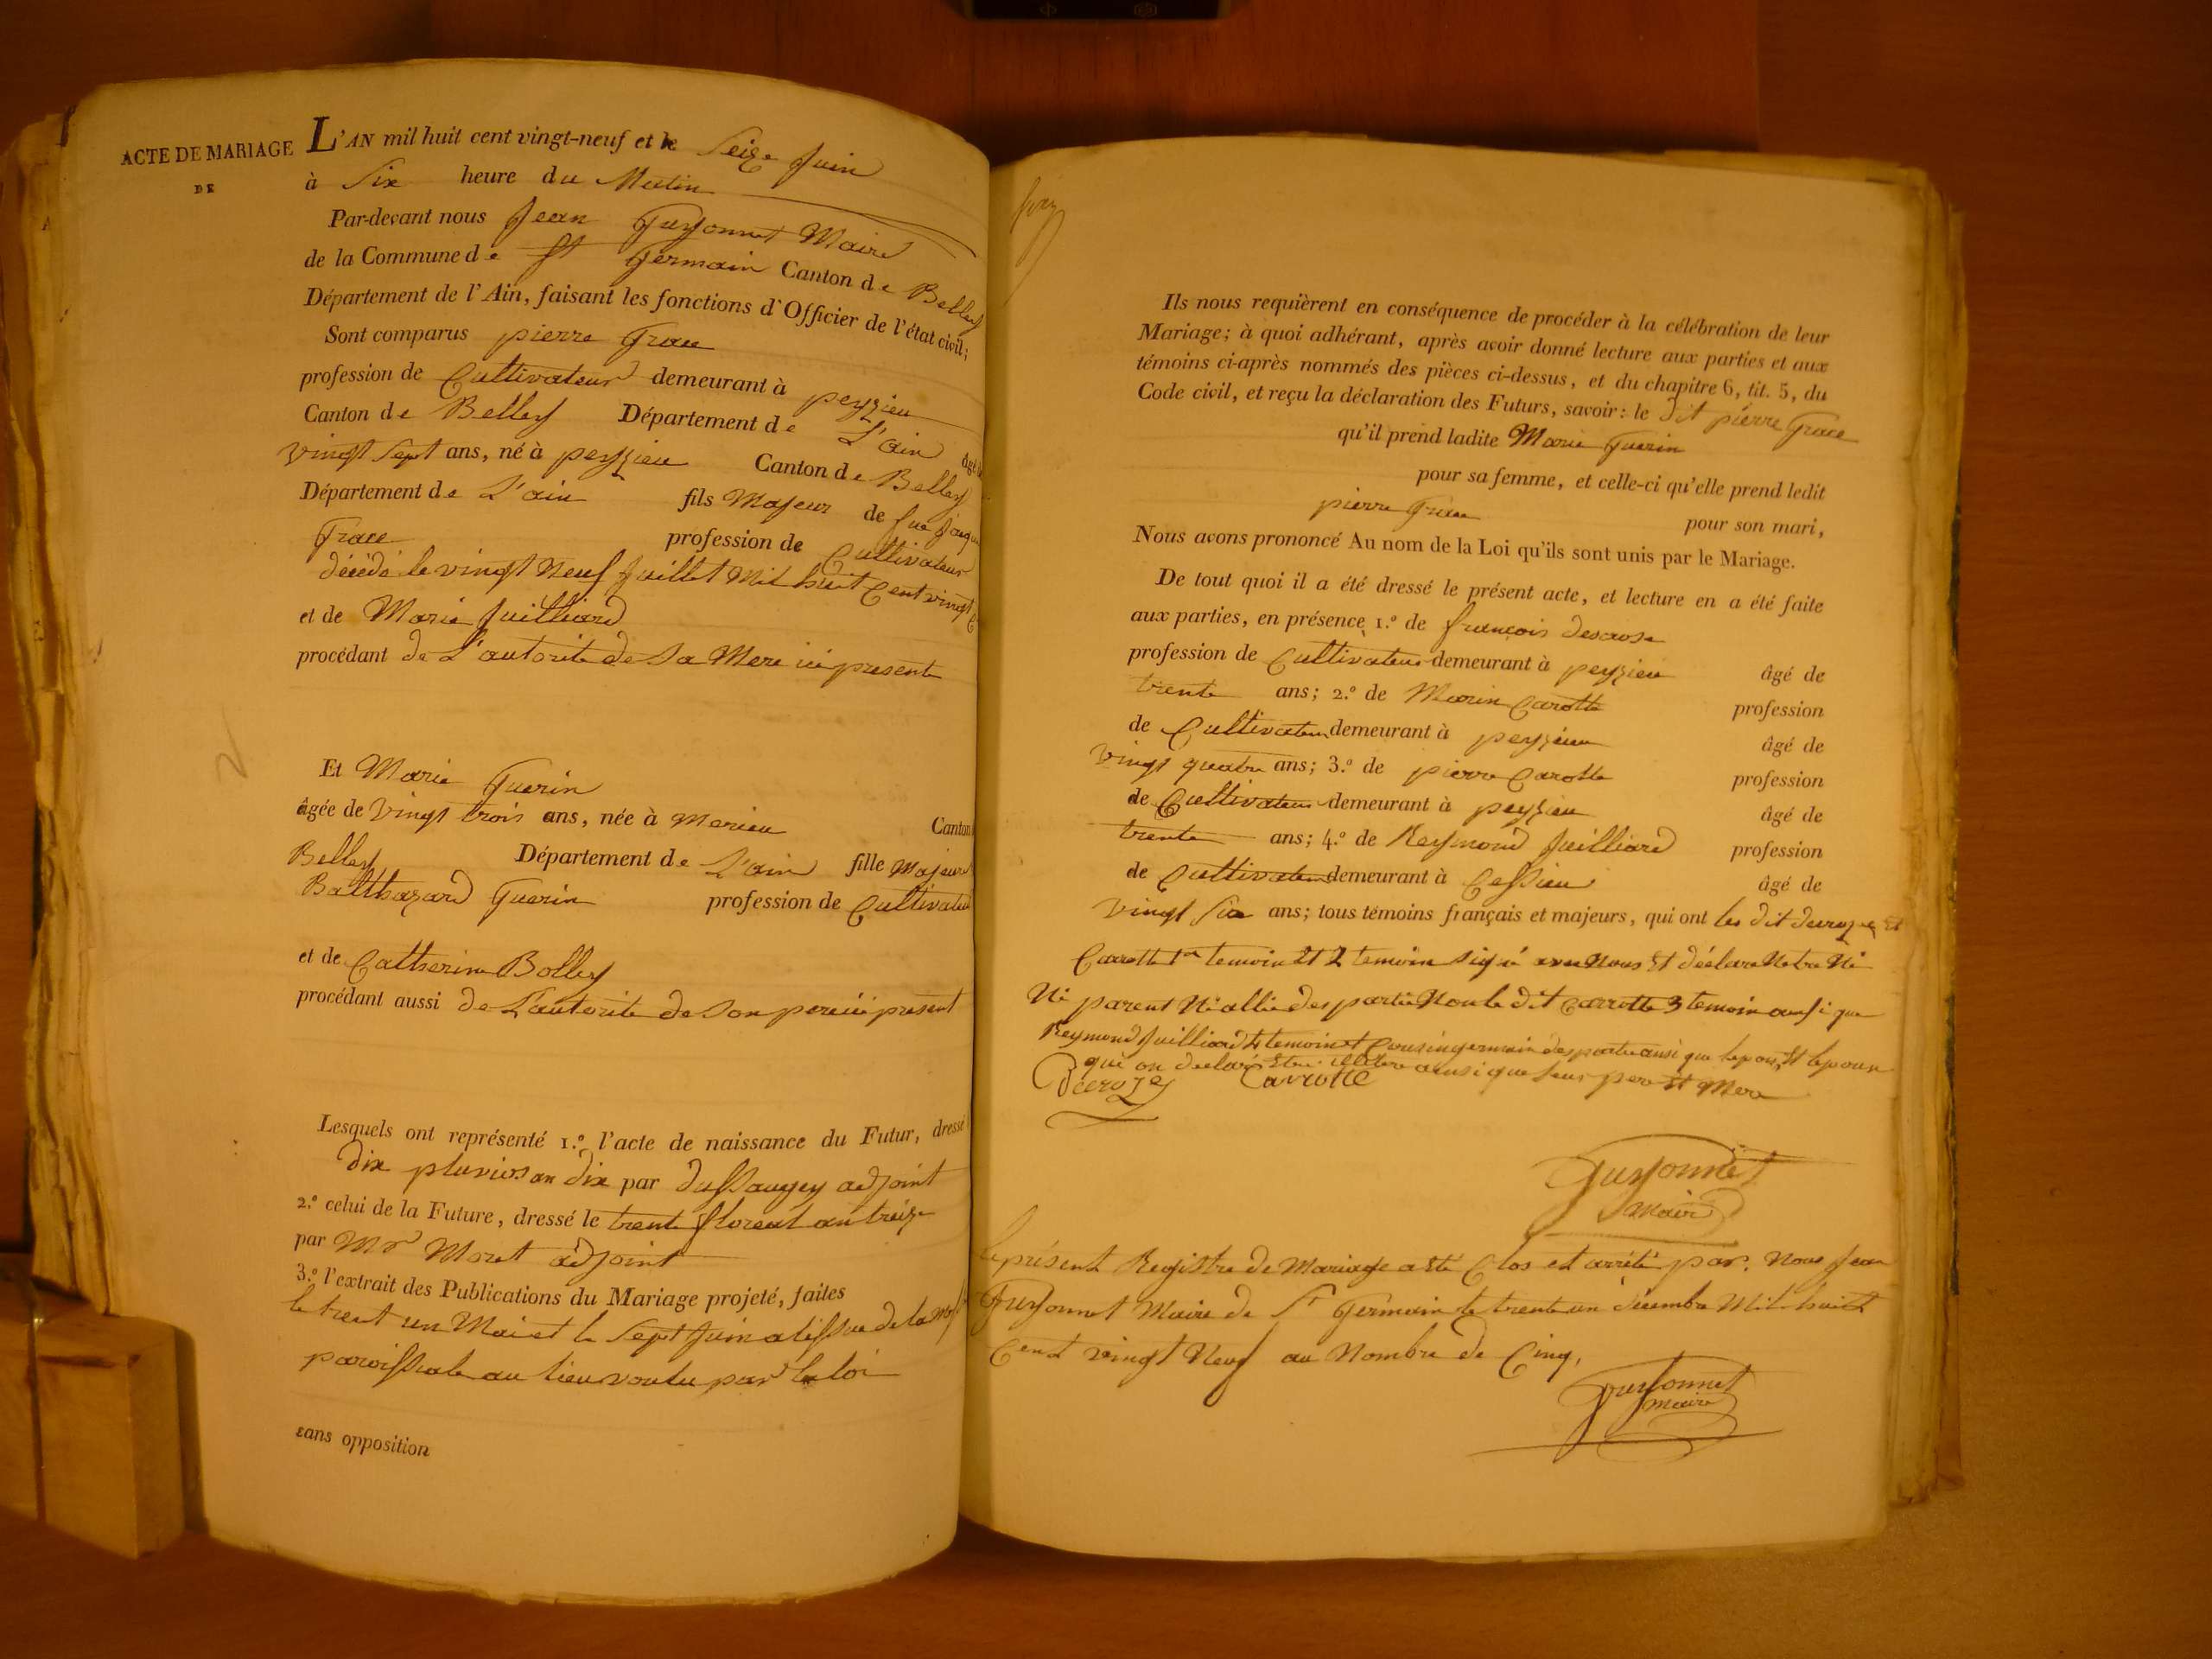 ACTE DE MARIAGE
DE
L'AN mil huit cent vingt-neuf et le Seize Juin
à Six heure du Matin
Par-devant nous Jean Guyonnet Maire
de la Commune de St Germain Canton de Belley
Département de l'Ain, faisant les fonctions d'Officier de l'état civil;
Sont comparus pierre Grace
profession de Cultivateur demeurant à peyzieu
Canton de Belley Département de L'ain âgé de
vingt Sept ans, né à peyzieu Canton de Belley
Département de L'ain fils Majeur de feu Jaque
Grace profession de Cultivateur
décédé le vingt Neuf Juillet Mil huit Cent vingt
et de Marie Juilliard
procédant de L'autorite de Sa Mere ici presente
Et Marie Guerin
âgée de Vingt trois ans, née à Merieu Canton
Belley Département de L'ain fille Majeure
Balthazard Guerin profession de Cultivateur
et de Catherine Bolley
procédant aussi de L'autorite de Son pere ici present
Lesquels ont représenté 1.º l'acte de naissance du Futur, dressé
dix pluvios an dix par Dussaugey adjoint
2.º celui de la Future, dressé le trente floreal an treize
par Mr Moret adjoint
3.º l'extrait des Publications du Mariage projeté, faites
le trent un Mai et le Sept Juin a lissue de la
paroissiale au lieu voulu par la loi
sans opposition
Ils nous requièrent en conséquence de procéder à la célébration de leur
Mariage; à quoi adhérant, après avoir donné lecture aux parties et aux
témoins ci-après nommés des pièces ci-dessus, et du chapitre 6, tit. 5, du
Code civil, et reçu la déclaration des Futurs, savoir: le dit pierre Grace
qu'il prend ladite Marie Guerin
pour sa femme, et celle-ci qu'elle prend ledit
pierre Grace pour son mari,
Nous avons prononcé Au nom de la Loi qu'ils sont unis par le Mariage.
De tout quoi il a été dressé le présent acte, et lecture en a été faite
aux parties, en présence 1.º de françois
profession de Cultivateur demeurant à peyzieu âgé de
trente ans; 2.º de Marin Carotte profession
de Cultivateur demeurant à peyzieu âgé de
vingt quatre ans; 3.º de pierre Carotte profession
de Cultivateur demeurant à peyzieu âgé de
trente ans; 4.º de Reymond Juilliard profession
de Cultivateur demeurant à Cessieu âgé de
Vingt Six ans; tous témoins français et majeurs, qui ont les dit et
Carrotte 1er temoin et 2 temoin signé avec Nous et déclare Netre Ni
Ni parent Ni allie des partie Non le dit Carrotte 3 temoin ausi que
Reymond Juilliard 4 temoin et Cousin germain des partie ausi que lepoux et lepouse
qui on declaré etre illetere ainsi que leur pere et Mere
Carrotte
Guyonnet
Maire
le présent Registre de Mariage a eté Clos et arrété par Nous Jean
Guyonnet Maire de St Germain le trente un décembre Mil huit
Cent vingt Neuf au Nombre de Cinq,
Guyonnet
maire